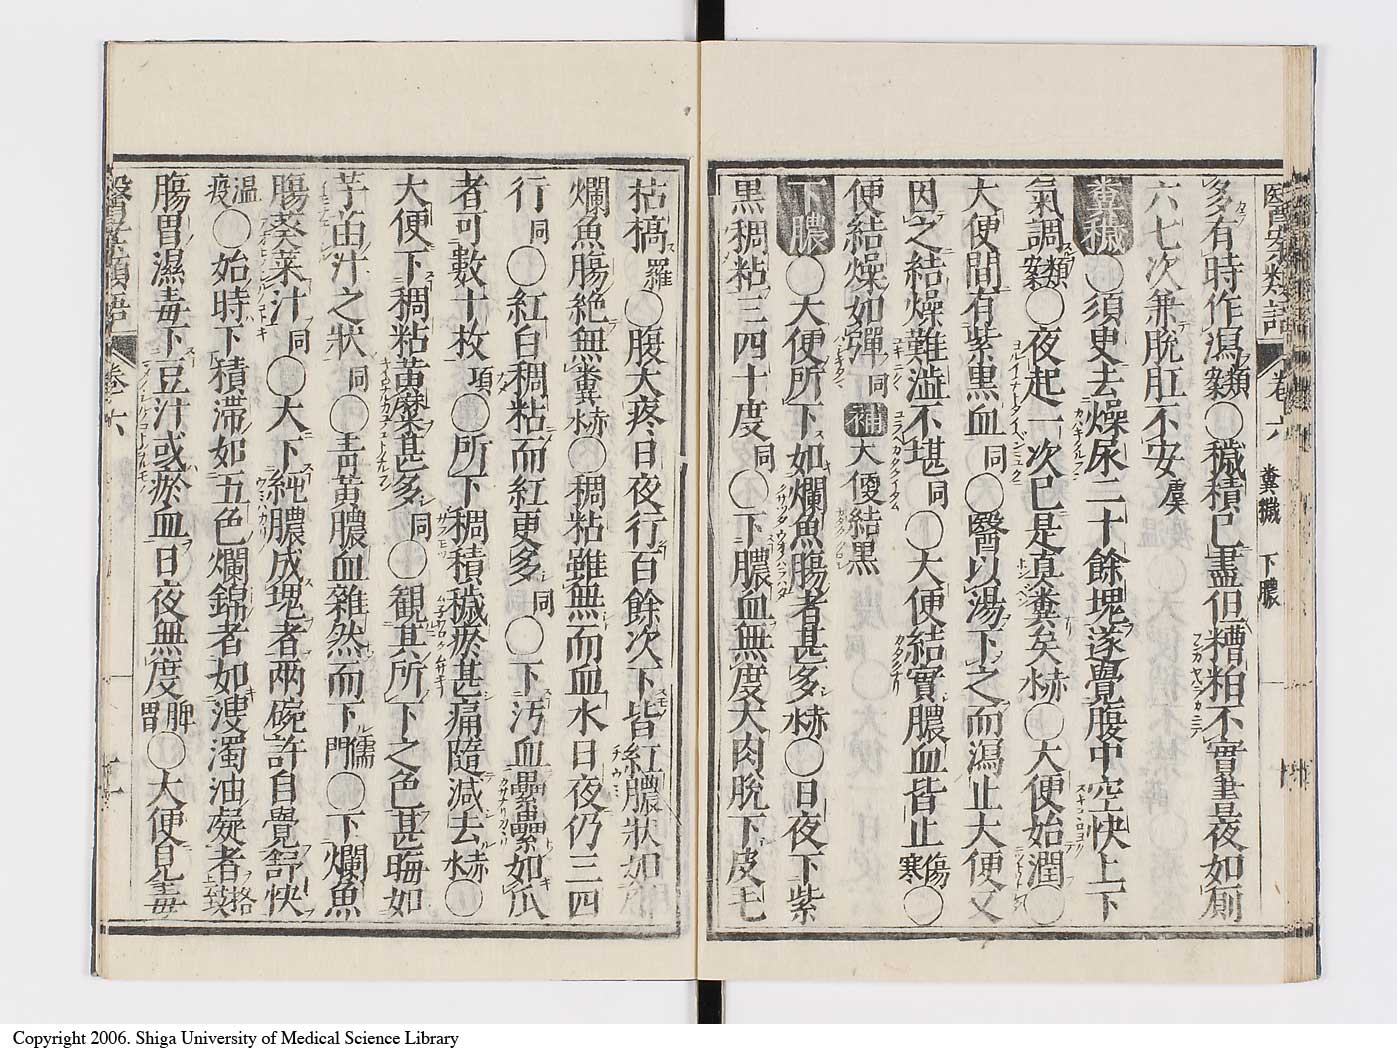 多有時作瀉類案○穢積已盡但糟粕不實晝夜如廁
六七次兼脫肛不安虞
糞穢○須臾去燥尿二十餘塊遂覺腹中空快上下
氣調類案○夜起一次已是真糞矣赤水○大便始潤○
大便間有紫黒血同○醫以湯下之而瀉止大便又
因之結燥難澁不堪同○大便結實膿血皆止傷寒○
便結燥如彈同補大便結黒
下膿○大便所下如爛魚腸者甚多赤水○日夜下紫
黒稠粘三四十度同○下膿血無度大肉脫下皮毛
醫案類語 卷六 糞穢 下膿
枯槁羅○腹大疼日夜行百餘次下皆紅膿狀如
爛魚腸絶無糞赤水○稠粘雖無而血水日夜仍三四
行同○紅白稠粘而紅更多同○下汚血纍纍如瓜
者可數十枚項○所下稠積穢瘀甚痛隨減去赤水○
大便下稠粘黄糜甚多同○觀其所下之色甚晦如
芋苗汁之狀同○青黄膿血雜然而下儒門○下爛魚
腸葵菜汁同○大下純膿成塊者兩碗許自覺舒快
温疫○始時下積滯如五色爛錦者如溲濁油凝者格致
腸胃濕毒下豆汁或瘀血日夜無度脾胃○大便見毒
卷六
Copyright 2006. Shiga University of Medical Science Library